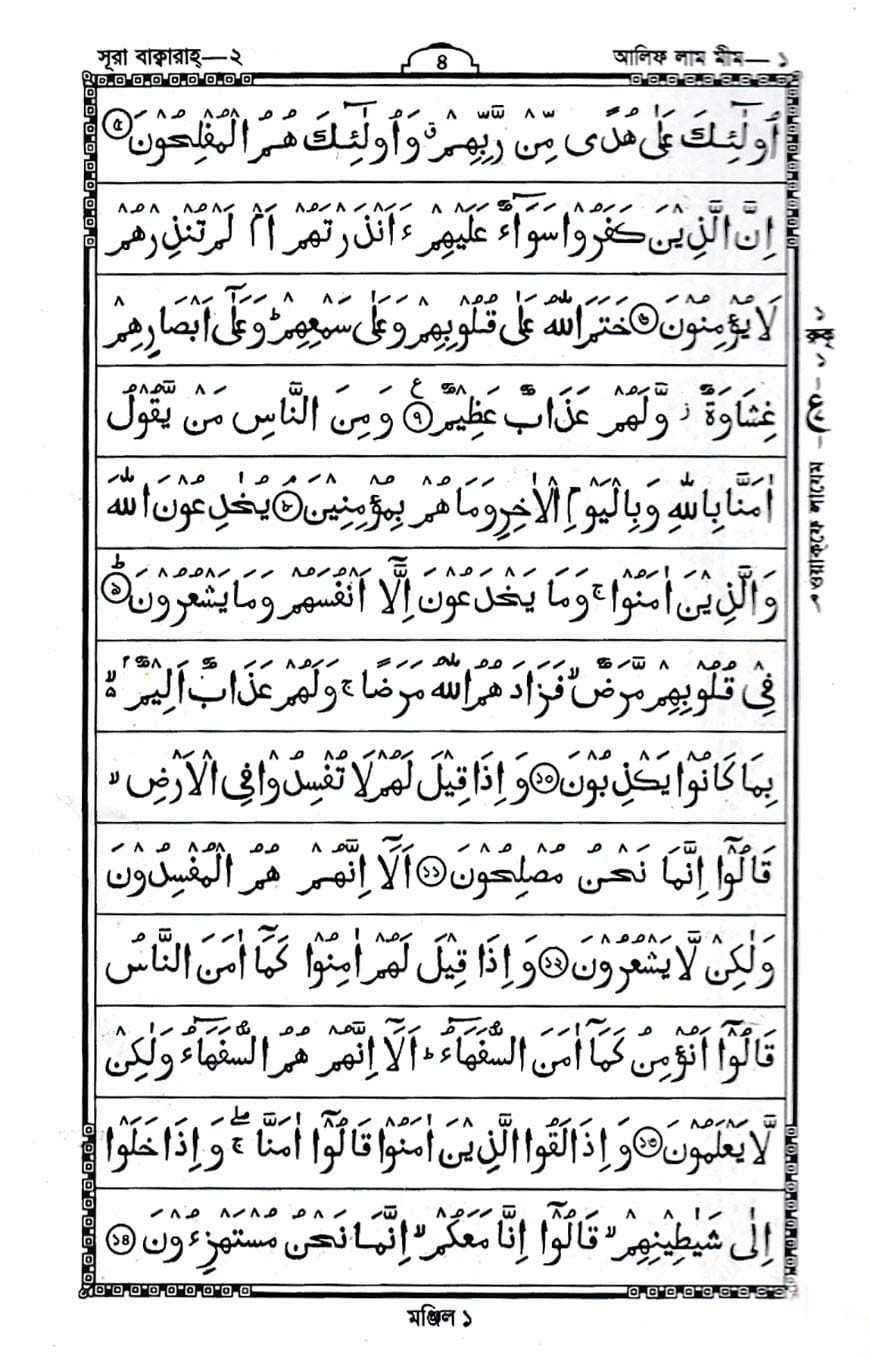 সূরা বাক্বারাহ্—২
৪
আলিফ লাম মীম—১
اُولٰٓئِكَ عَلٰى هُدًى مِّنْ رَّبِّهِمْ ق وَاُولٰٓئِكَ هُمُ الْمُفْلِحُوْنَ ৫
اِنَّ الَّذِيْنَ كَفَرُوْا سَوَآءٌ عَلَيْهِمْ ءَاَنْذَرْتَهُمْ اَمْ لَمْ تُنْذِرْهُمْ
لَا يُؤْمِنُوْنَ ৬ خَتَمَ اللّٰهُ عَلٰى قُلُوْبِهِمْ وَعَلٰى سَمْعِهِمْ ط وَعَلٰٓى اَبْصَارِهِمْ
غِشَاوَةٌ ز وَّلَهُمْ عَذَابٌ عَظِيْمٌ ع ৭ وَمِنَ النَّاسِ مَنْ يَّقُوْلُ
اٰمَنَّا بِاللّٰهِ وَبِالْيَوْمِ الْاٰخِرِ وَمَا هُمْ بِمُؤْمِنِيْنَ م ৮ يُخٰدِعُوْنَ اللّٰهَ
وَالَّذِيْنَ اٰمَنُوْا ج وَمَا يَخْدَعُوْنَ اِلَّآ اَنْفُسَهُمْ وَمَا يَشْعُرُوْنَ ط ৯
فِيْ قُلُوْبِهِمْ مَّرَضٌ لا فَزَادَهُمُ اللّٰهُ مَرَضًا ج وَلَهُمْ عَذَابٌ اَلِيْمٌ ۢ ۵ لا
بِمَا كَانُوْا يَكْذِبُوْنَ ১০ وَاِذَا قِيْلَ لَهُمْ لَا تُفْسِدُوْا فِي الْاَرْضِ لا
قَالُوْٓا اِنَّمَا نَحْنُ مُصْلِحُوْنَ ১১ اَلَآ اِنَّهُمْ هُمُ الْمُفْسِدُوْنَ
وَلٰكِنْ لَّا يَشْعُرُوْنَ ১২ وَاِذَا قِيْلَ لَهُمْ اٰمِنُوْا كَمَآ اٰمَنَ النَّاسُ
قَالُوْٓا اَنُؤْمِنُ كَمَآ اٰمَنَ السُّفَهَآءُ ط اَلَآ اِنَّهُمْ هُمُ السُّفَهَآءُ وَلٰكِنْ
لَّا يَعْلَمُوْنَ ১৩ وَاِذَا لَقُوا الَّذِيْنَ اٰمَنُوْا قَالُوْٓا اٰمَنَّا ج صلے وَاِذَا خَلَوْا
اِلٰى شَيٰطِيْنِهِمْ لا قَالُوْٓا اِنَّا مَعَكُمْ لا اِنَّمَا نَحْنُ مُسْتَهْزِءُوْنَ ১৪
১ রুকূ ১–ع–ওয়াক্‌ফে লাযেম م
মঞ্জিল ১